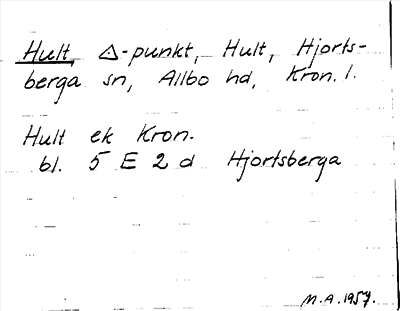 Hult, △-punkt, Hult, Hjorts-
berga sn, Allbo hd, Kron. l.
Hult ek Kron.
bl. 5 E 2 d Hjortsberga
M.A. 1957.